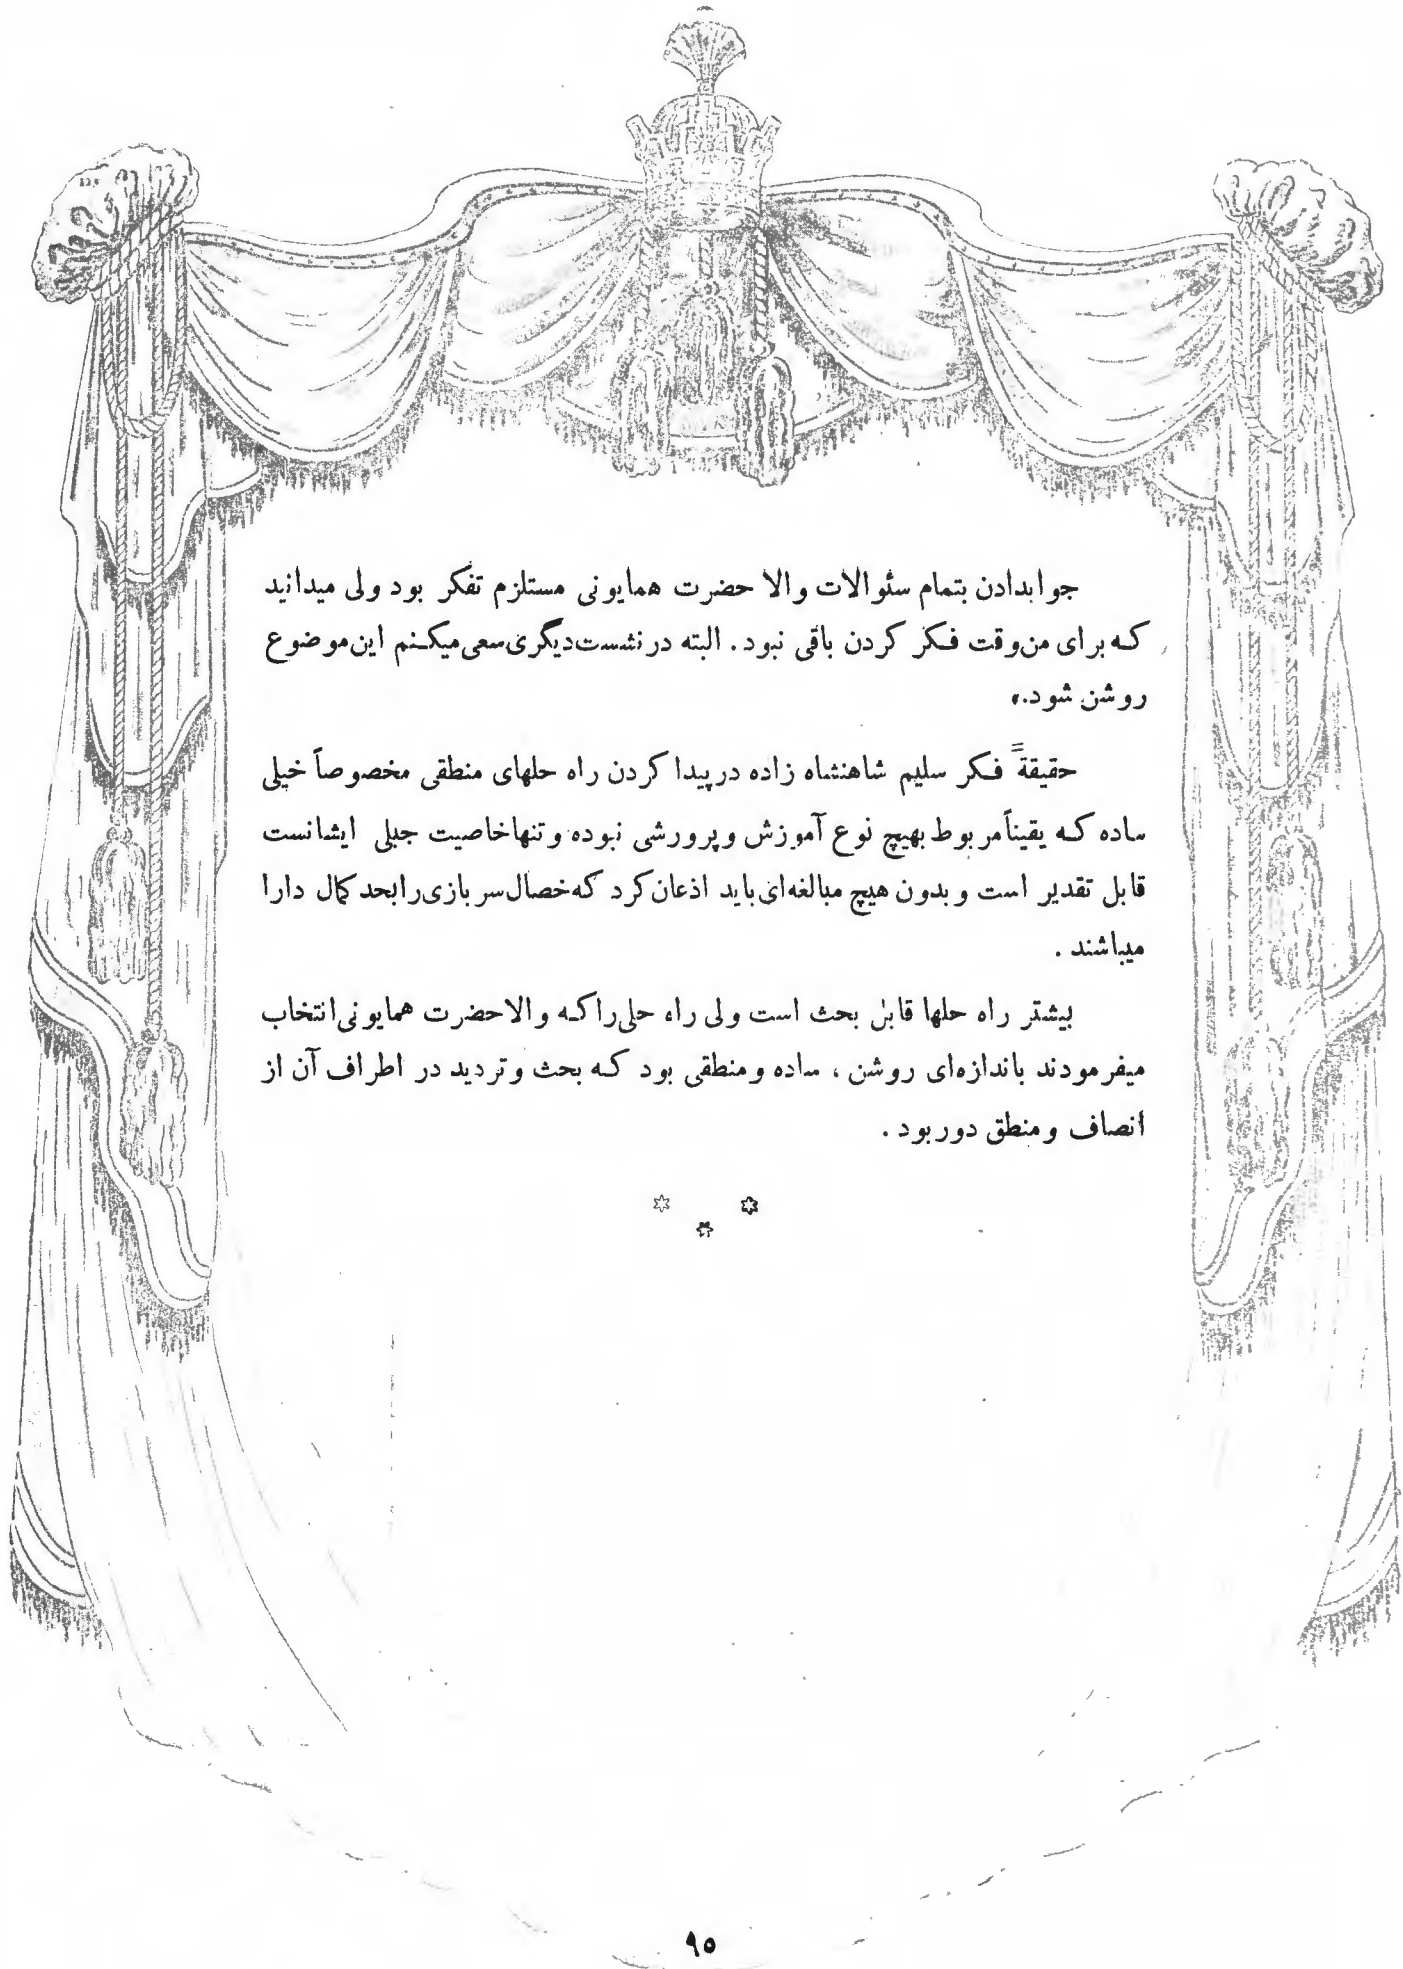 جوابدادن بتمام سئوالات والا حضرت همایونی مستلزم تفکر بود ولی میدانید
که برای من‌وقت فکر کردن باقی نبود. البته در نشست‌دیگری‌سعی‌میکنم این‌موضوع
روشن شود.»
حقیقةً فکر سلیم شاهنشاه زاده در پیدا کردن راه حلهای منطقی مخصوصاً خیلی
ساده که یقیناً مربوط بهیچ نوع آموزش و پرورشی نبوده و تنها خاصیت جبلی ایشانست
قابل تقدیر است و بدون هیچ مبالغه‌ای باید اذعان کرد که خصال سربازی را بحد کمال دارا
میباشند .
بیشتر راه حلها قابل بحث است ولی راه حلی‌را که والاحضرت همایونی انتخاب
میفرمودند باندازه‌ای روشن ، ساده و منطقی بود که بحث و تردید در اطراف آن از
انصاف و منطق دور بود .
* * *
۹۵